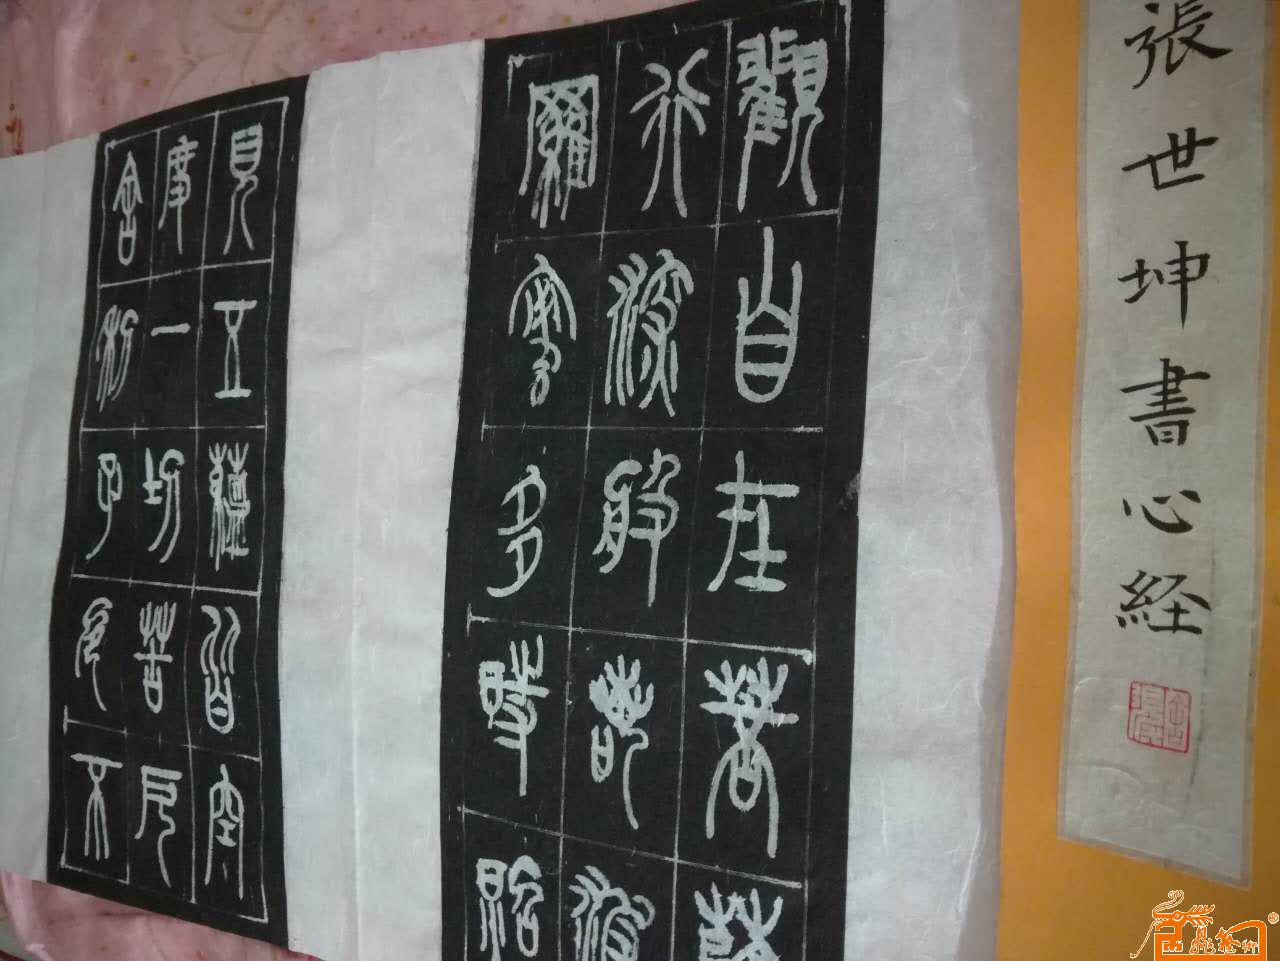 張世坤書心経
觀自在菩薩
行深般若波
羅蜜多時照
見五蘊皆空
度一切苦厄
舍利子色不